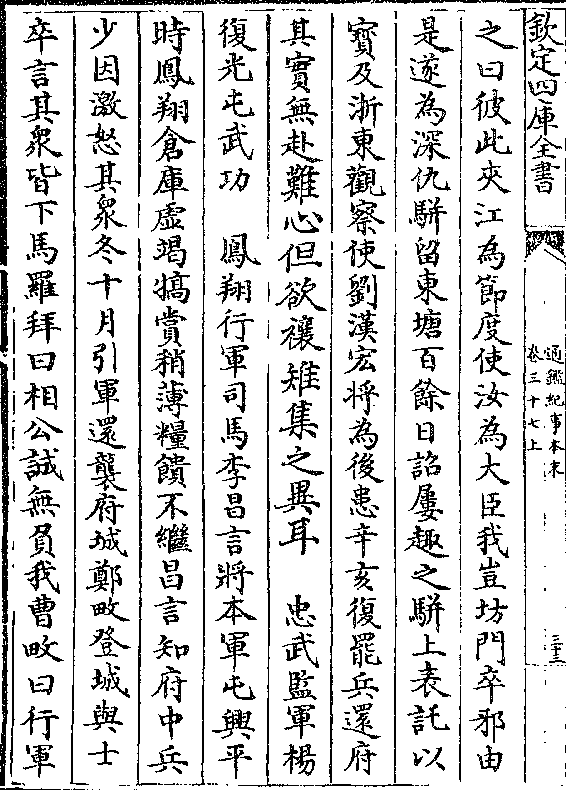 欽定四庫全書
通鑑紀事本末
卷三十七上
三十三
之曰彼此夾江為節度使汝為大臣我豈坊門卒邪由
是遂為深仇駢留東塘百餘日詔屢趣之駢上表託以
寶及浙東觀察使劉漢宏將為後患辛亥復罷兵還府
其實無赴難心但欲禳雉集之異耳　忠武監軍楊
復光屯武功　鳳翔行軍司馬李昌言將本軍屯興平
時鳳翔倉庫虛竭犒賞稍薄糧饋不繼昌言知府中兵
少因激怒其衆冬十月引軍還襲府城鄭畋登城與士
卒言其衆皆下馬羅拜曰相公誠無負我曹畋曰行軍